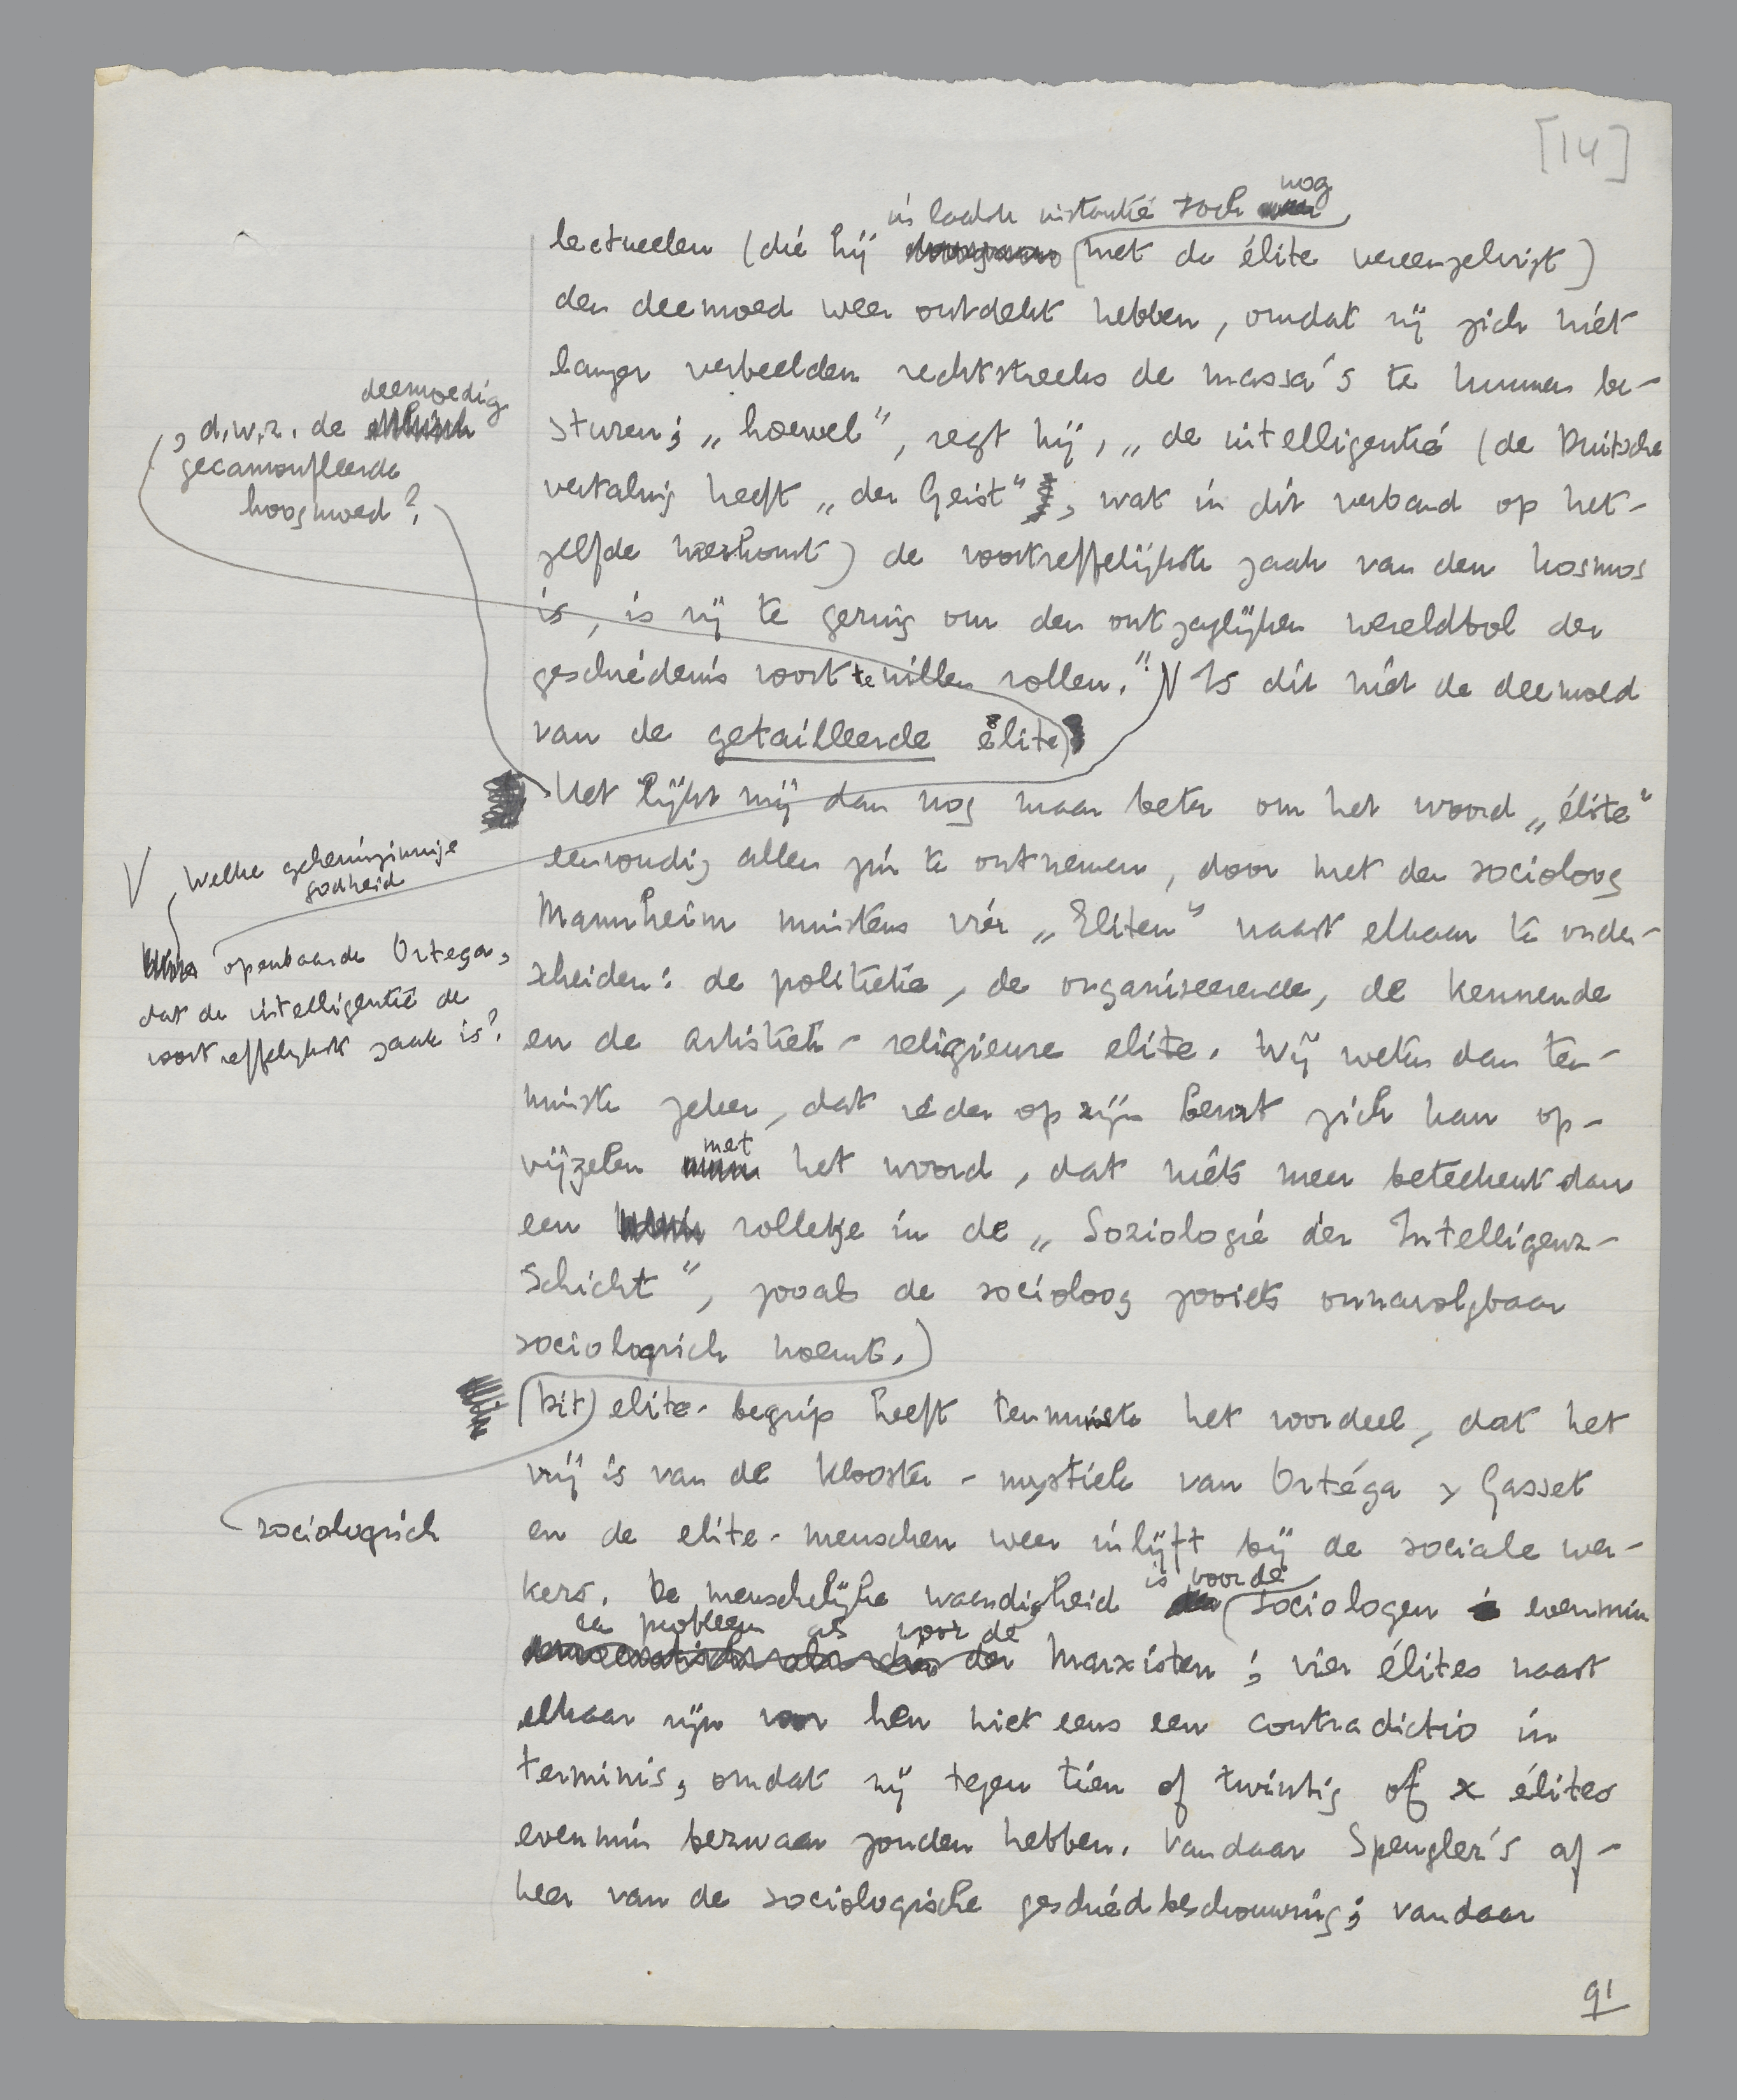 [14]
in laatste instantie toch nog
lectueelen (die hij met de élite vereenzelvigt)
den deemoed weer ontdekt hebben, omdat zij zich niet
langer verbeelden rechtstreeks de massa's te kunnen be-
sturen; „hoewel”, zegt hij, „de intelligentie (de Duitsche
vertaling heeft „der Geist”, wat in dit verband op het-
zelfde neerkomt) de voortreffelijkste zaak van den kosmos
is, is zij te gering om den ontzaglijken wereldbol der
geschiedenis voort te willen rollen.” V Is dit niet de deemoed
van de getailleerde élite
, d.w.z. de deemoedig
gecamoufleerde
hoogmoed?
Het lijkt mij dan nog maar beter om het woord „élite”
eenvoudig allen zin te ontnemen, door met den socioloog
Mannheim minstens vier „Eliten” naast elkaar te onder-
scheiden: de politieke, de organiseerende, de kennende
en de artistiek-religieuze elite. Wij weten dan ten-
minste zeker, dat ieder op zijn beurt zich kan op-
vijzelen met het woord, dat niets meer beteekent dan
een rolletje in de „Soziologie der Intelligenz-
Schicht”, zooals de socioloog zooiets onnavolgbaar
sociologisch noemt.)
V Welke geheimzinnige
godheid
openbaarde Ortega,
dat de intelligentie de
voortreffelijkste zaak is?
(Dit) elite-begrip heeft tenminste het voordeel, dat het
vrij is van de klooster-mystiek van Ortéga y Gasset
sociologisch
en de elite-menschen weer inlijft bij de sociale wer-
kers. De menschelijke waardigheid is voor de sociologen evenmin
een probleem als voor de Marxisten; vier élites naast
elkaar zijn voor hen niet eens een contradictio in
terminis, omdat zij tegen tien of twintig of x élites
evenmin bezwaar zouden hebben. Vandaar Spengler's af-
keer van de sociologische geschiedbeschouwing; vandaar
91